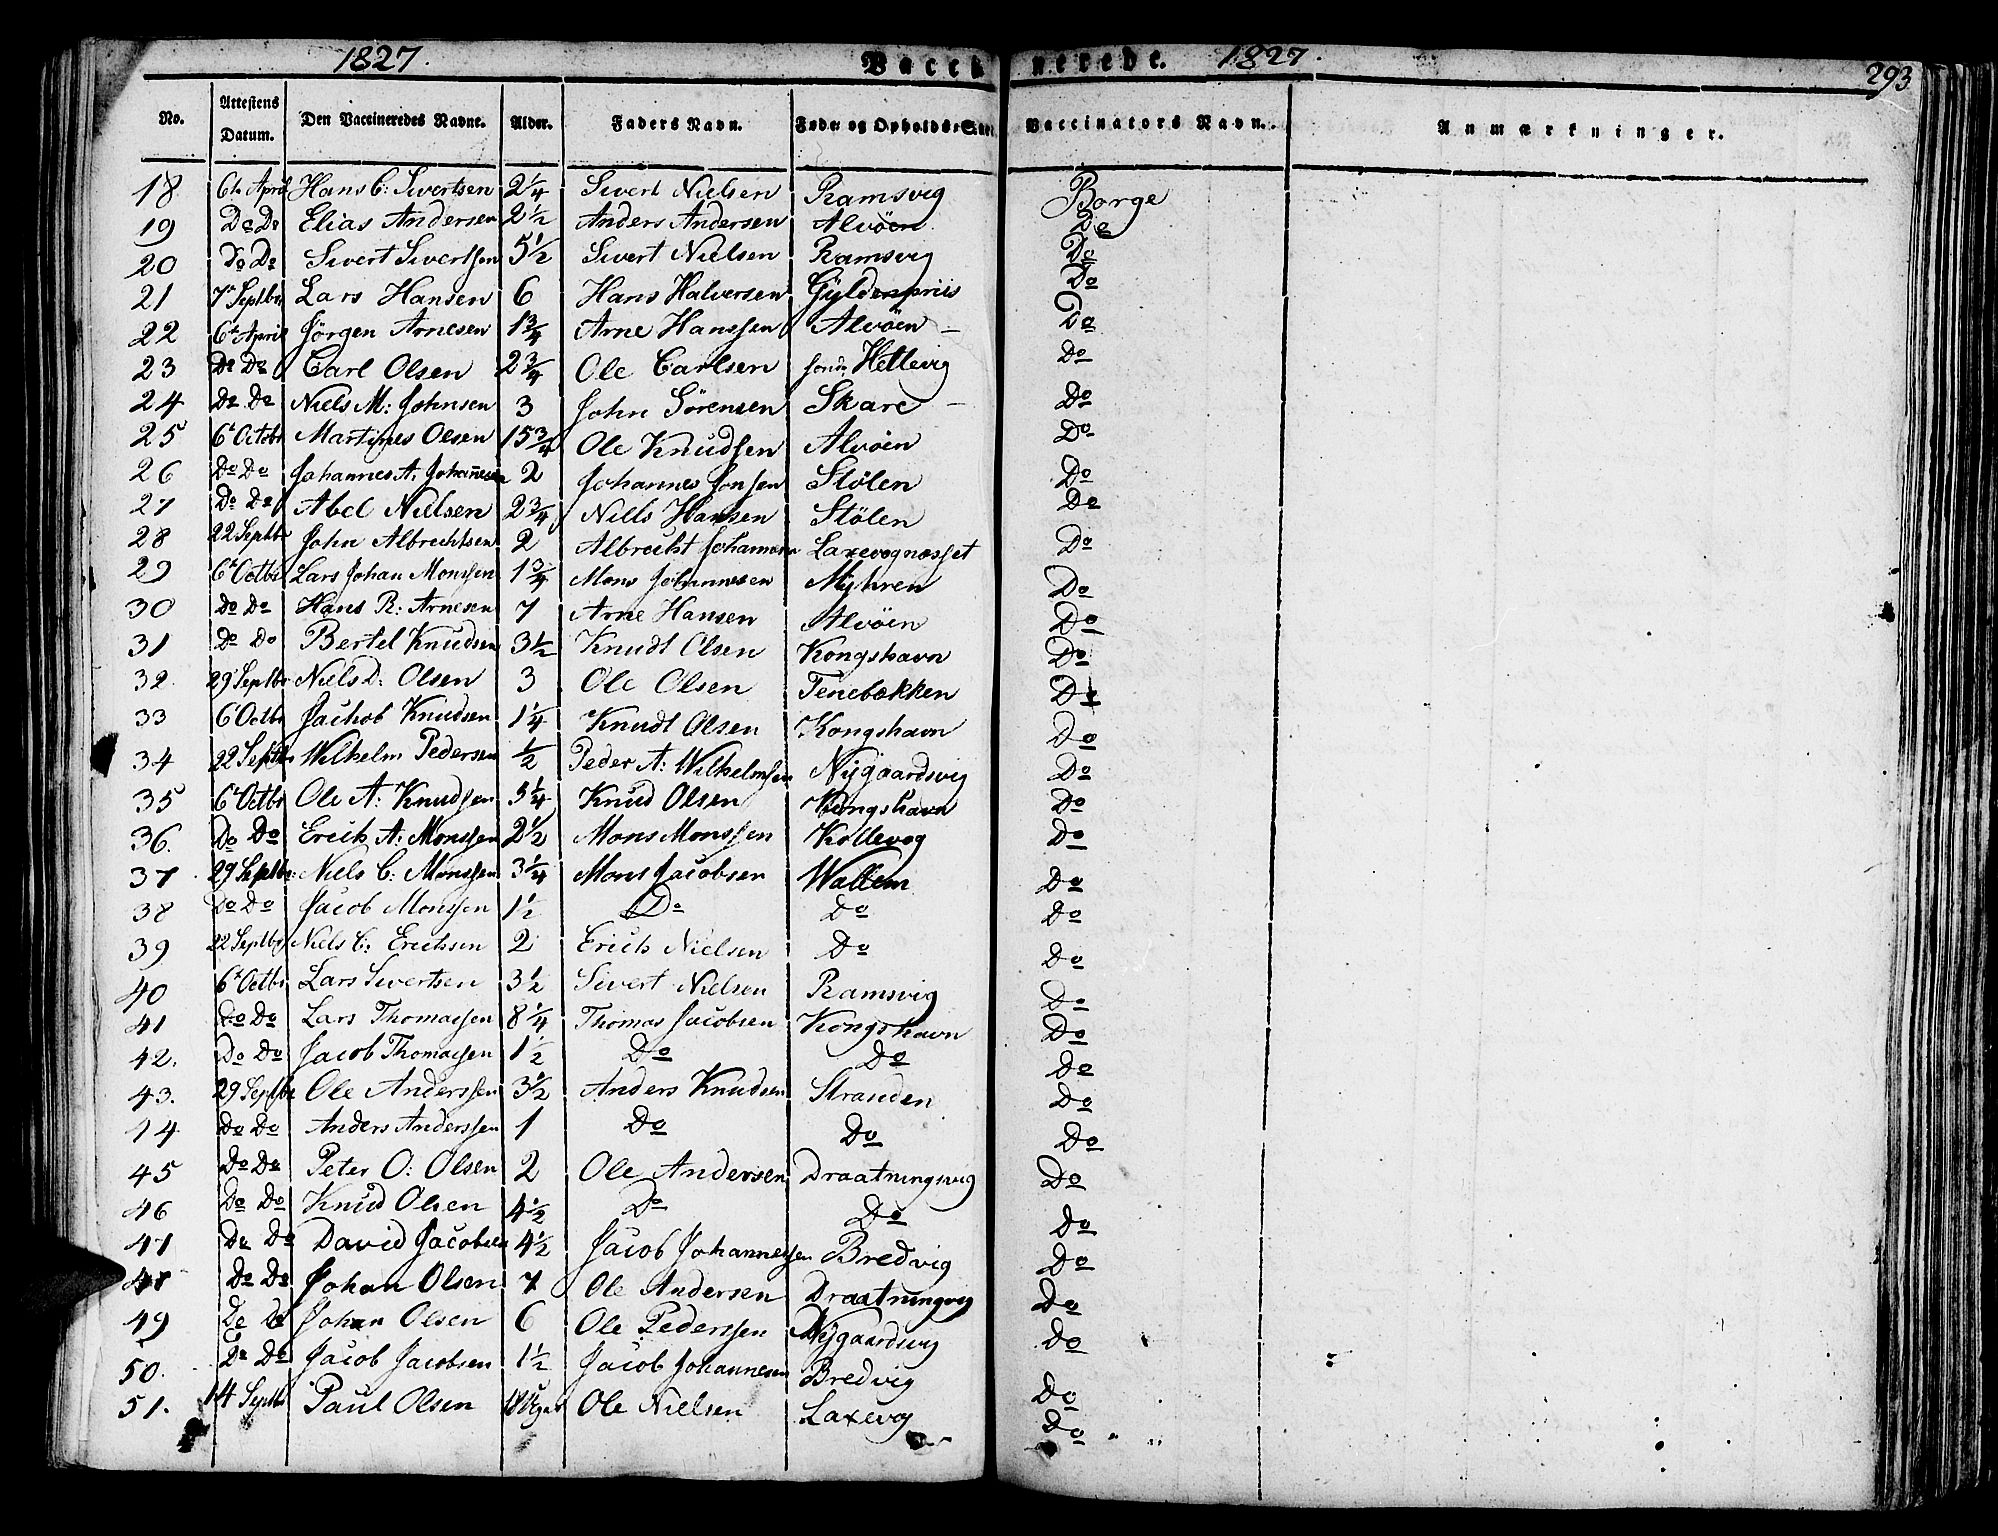 1827. Vaccinerede. 1827. 293
No. Attestens Datum. Den Vaccineredes Navne. Alder. Faders Navn. Føde- og Opholds-Sted Vaccinators Navn. Anmærkninger.
18 6te April Hans C: Sivertsen 2 1/4 Sivert Nielsen Ramsvig Borge
19 Do Do Elias Andersen 2 1/2 Anders Andersen Alvöen Do
20 Do Do Sivert Sivertsen 5 1/2 Sivert Nielsen Ramsvig Do
21 7r Septbr Lars Hansen 6 Hans Halversen Gyldenpriis Do
22 6te April Jörgen Arnesen 1 3/4 Arne Hanssen Alvöen – Do
23 Do Do Carl Olsen 2 3/4 Ole Carlsen Hellevig Do
24 Do Do Niels M: Johnsen 3 John Sörensen Skare – Do
25 6te Octobr Martines Olsen 15 3/4 Ole Knudsen Alvöen Do
26 Do Do Johannes A: Johannesen 2 Johannes Jonsen Stölen Do
27 Do Do Abel Nielsen 2 3/4 Niels Hansen Stölen Do
28 22 Septbr John Albrechtsen 2 Albrecht Johannesen Laxevognæsset Do
29 6te Octbr Lars Johan Monssen 1 3/4 Mons Johannesen Myhren Do
30 Do Do Hans R: Arnesen 7 Arne Hansen Alvöen Do
31 Do Do Bertel Knudsen 3 1/2 Knudt Olsen Kongshavn Do
32. 29 Septbr Niels D: Olsen 3 Ole Olsen Tenebækken Do
33 6te Octbr Jachob Knudsen 1 1/4 Knudt Olsen Kongshavn Do
34 22 Septbr Wilhelm Pedersen 1/2 Peder A: Wilhelmsen Nÿgaardsvig Do
35 6te Octbr Ole A: Knudsen 5 1/4 Knud Olsen Kongshavn Do
36. Do Do Erich A: Monssen 2 1/2 Mons Monssen Kollevog Do
37 29 Septbr: Niels C: Monssen 3 1/4 Mons Jacobsen Wallem Do
38 Do Do Jacob Monssen 1 1/2 Do Do Do
39 22 Septbr Niels C: Erichsen 2 Erich Nielsen Do Do
40 6te Octbr Lars Sivertsen 3 1/2 Sivert Nielsen Ramsvig Do
41 Do Do Lars Thomassen 8 1/4 Thomas Jacobsen Kongshavn Do
42. Do Do Jacob Thomassen 1 1/2 Do Do Do
43. 29 Septbr Ole Anderssen 3 1/2 Anders Knudsen Stranden Do
44 Do Do Anders Anderssen 1 Do Do Do
45 Do Do Peter O: Olsen 2 Ole Andersen Draatningsvig Do
46 Do Do Knud Olsen 4 1/2 Do Do Do
47 Do Do David Jacobsen 4 1/2 Jacob Johannessen Bredvig Do
48 Do Do Johan Olsen 7 Ole Andersen Draatningvig Do
49 Do Do Johan Olsen 6 Ole Pederssen Nÿgaardsvig Do
50. Do Do Jacob Jacobsen 1 1/2 Jacob Johannesen Bredvig Do
51. 14 Septbr Paul Olsen 18 Uger Ole Nielsen Laxevog Do